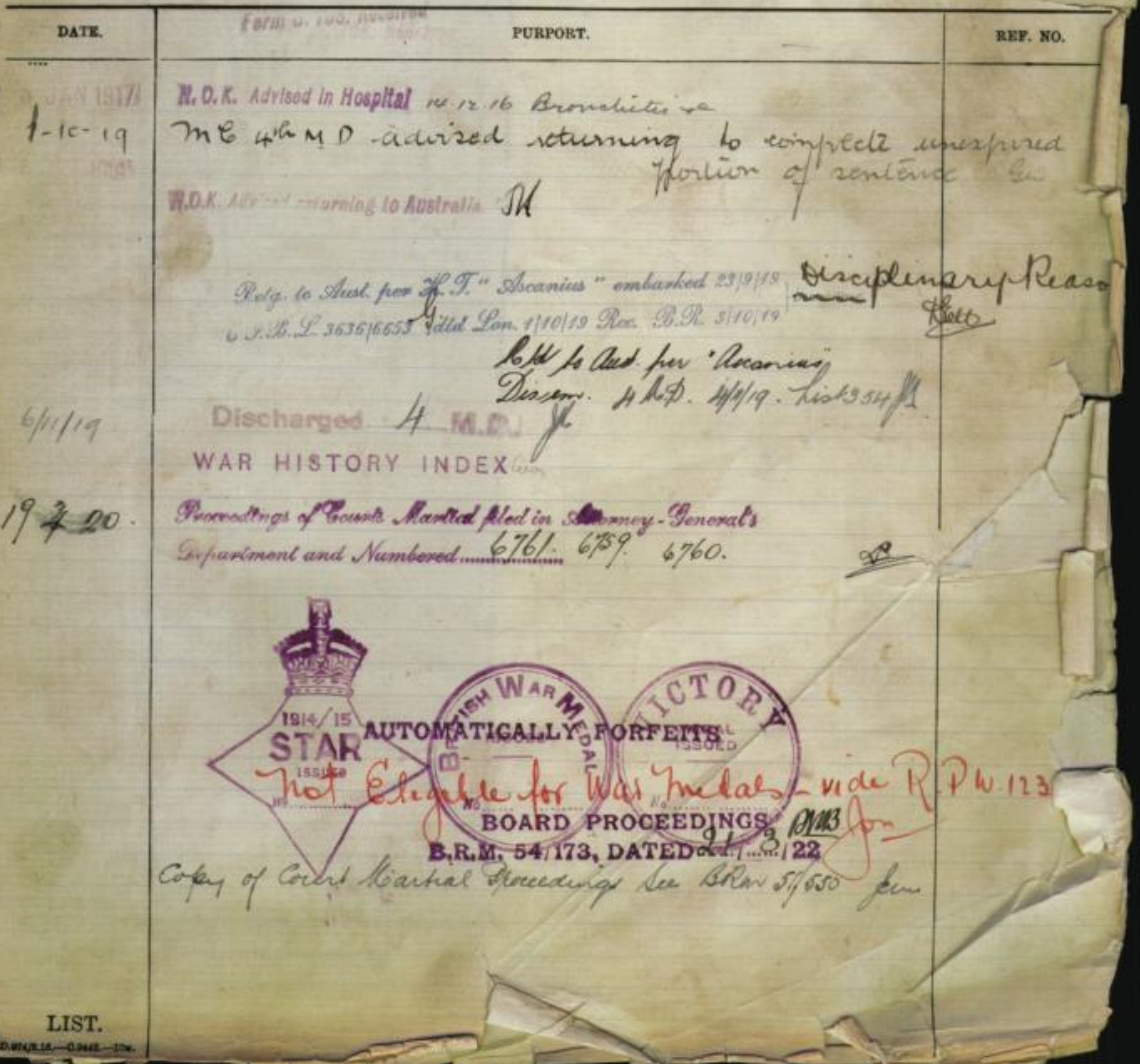 Form B. 103. Received
DATE. PURPORT. REF. NO.
JAN 1917 N.O.K. Advised in Hospital 14 12 16 Bronchitis
1-10-19 MC 4th M D advised returning to complete unexpired
portion of sentence
N.O.K. Advised returning to Australia
Retg. to Aust. per H.T. "Ascanius" embarked 23/9/19 Disciplinary Reaso
3636/6653 dtd Lon. 1/10/19 Rec. B.R. 3/10/19
Rtd to Aust. per "Ascanius"
Disem. 4 M.D. List 354
6/11/19 Discharged 4 M.D.
WAR HISTORY INDEX
19 20. Proceedings of Courts Martial filed in Attorney-General's
Department and Numbered 6761. 6759. 6760.
1914/15
STAR
ISSUED
BRITISH WAR MEDAL
VICTORY
MEDAL
ISSUED
AUTOMATICALLY FORFEITS
Not Eligible for War Medals - vide R.P.W. 123
No.
BOARD PROCEEDINGS
B.R.M. 54/173, DATED 21/3/22
Copy of Court Martial Proceedings See BRM 51/550
LIST.